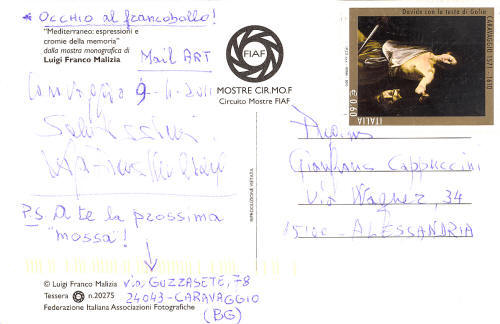 * OCCHIO al francobollo!
"Mediterraneo: espressioni e
cromie della memoria"
dalla mostra monografica di
Luigi Franco Malizia
Mail ART
FIAF
MOSTRE CIR.MO.F
Circuito Mostre FIAF
Caravaggio 9-11-2011
Salutissimi
Davide con la testa di Golia
CARAVAGGIO 1571-1610
€ 0,60
ITALIA
Gianfranco Cappuccini
Via Wagner, 34
15100 - ALESSANDRIA
P.S. A te la prossima
"mossa"!
© Luigi Franco Malizia
Tessera n.20275
Federazione Italiana Associazioni Fotografiche
via GUZZASETE, 78
24043-CARAVAGGIO
(BG)